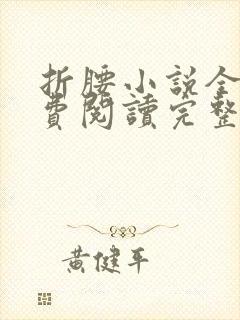 折腰小說全
費閱讀完整
黃健平